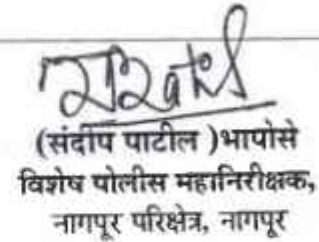 (संदीप पाटील )भापोसे
विशेष पोलीस महानिरीक्षक,
नागपूर परिक्षेत्र, नागपूर